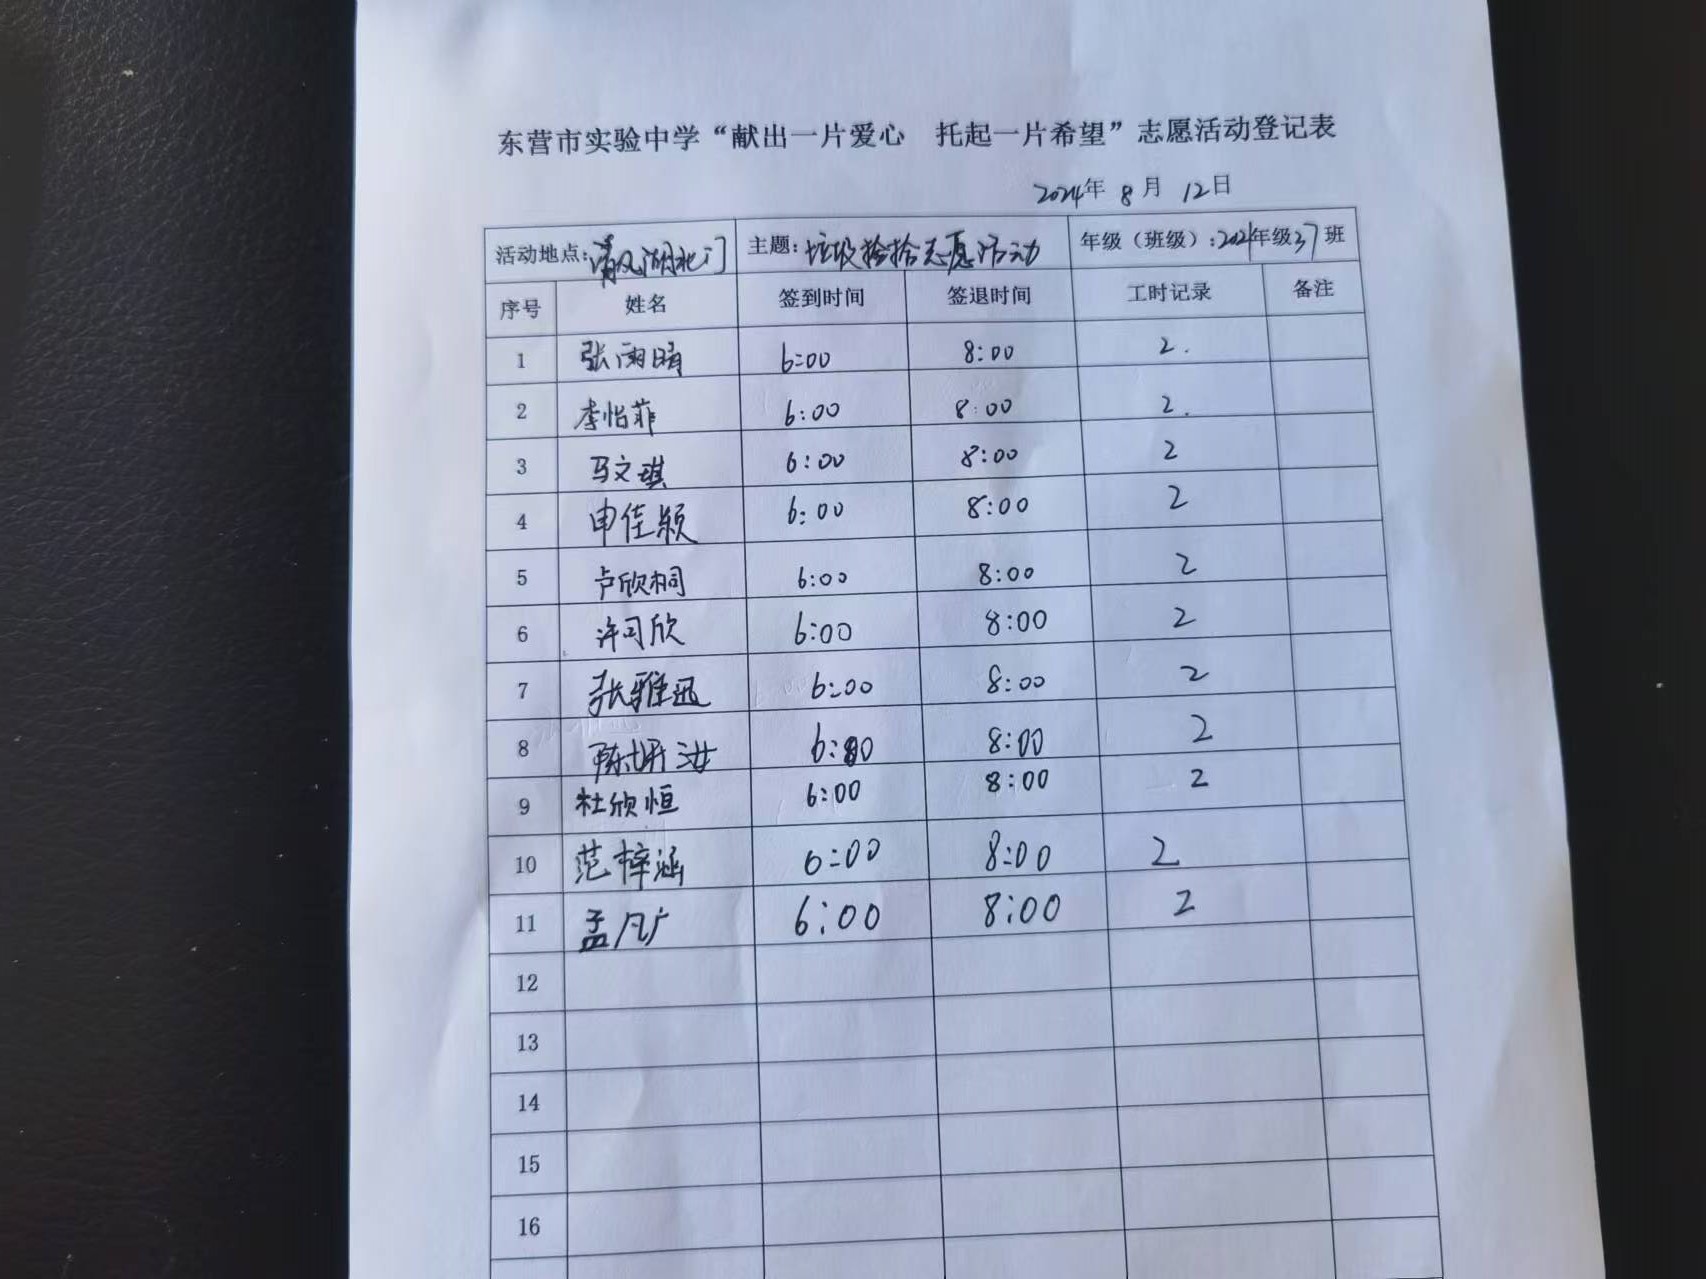 东营市实验中学“献出一片爱心 托起一片希望”志愿活动登记表
2024年 8月 12日
活动地点:清风湖北门 主题:垃圾捡拾志愿活动 年级（班级）:2024年级37班
序号 姓名 签到时间 签退时间 工时记录 备注
1 张雨晴 6:00 8:00 2.
2 李怡菲 6:00 8:00 2.
3 马文琪 6:00 8:00 2
4 申佳颖 6:00 8:00 2
5 卢欣桐 6:00 8:00 2
6 许可欣 6:00 8:00 2
7 张雅迅 6:00 8:00 2
8 陈妍汝 6:00 8:00 2
9 杜欣恒 6:00 8:00 2
10 范梓涵 6:00 8:00 2
11 孟凡广 6:00 8:00 2
12
13
14
15
16